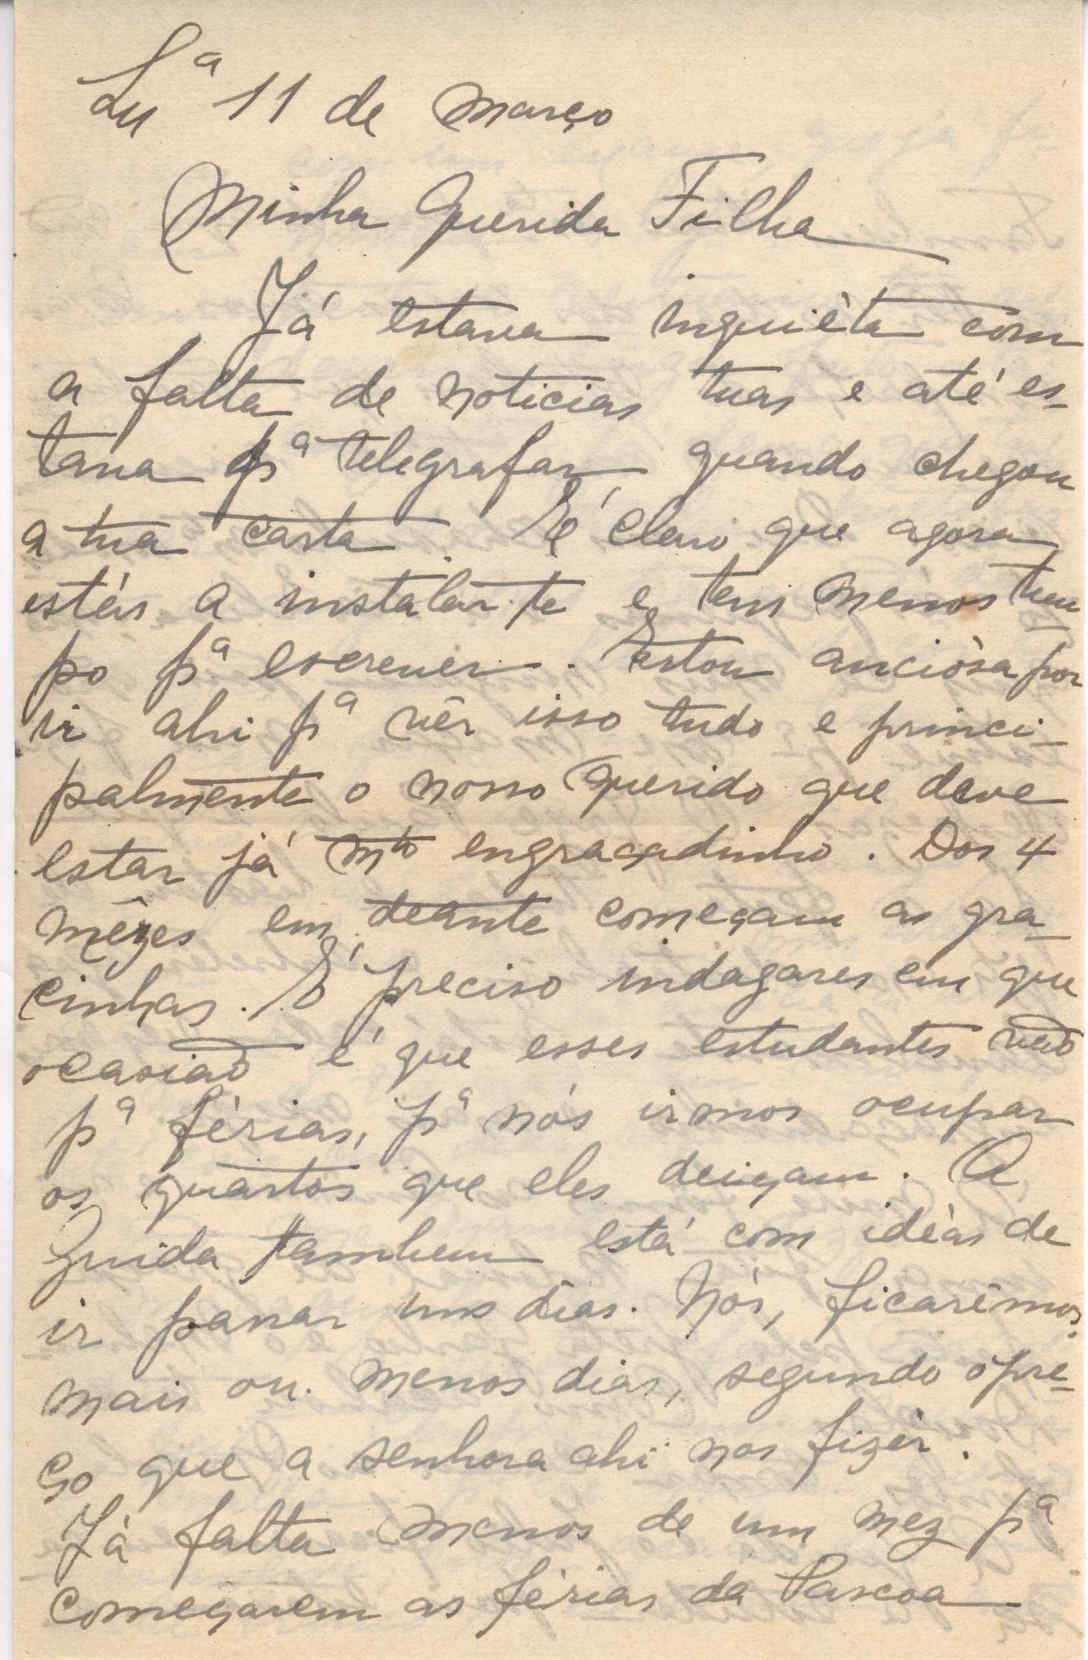 Lxª 11 de Março
Minha Querida Filha
Já estava inquiéta com
a falta de noticias tuas e até es-
tava pª telegrafar, quando chegou
a tua carta. É claro que agora
estás a instalar-te e tens menos tem-
po pª escrever. Estou anciósa por
ir ahi pª vêr isso tudo e princi-
palmente o nosso Querido que deve
estar já mto engraçadinho. Dos 4
mêzes em deante começam as gra-
cinhas. É preciso indagares em que
ocasião é que esses estudantes vão
pª férias, pª nós irmos ocupar
os quartos que eles deixam. A
Guida tambem está com idèas de
ir passar uns dias. Nós, ficarêmos,
mais ou menos dias, segundo o pre-
ço que a senhora ahi nos fizér.
Já falta menos de um mez pª
começarem as férias da Pascoa